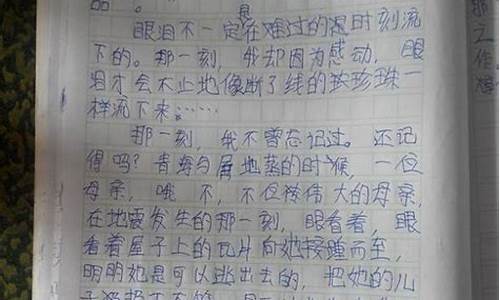 品。
眼泪不一定是在难过的时刻流
下的。那一刻，我却因为感动，眼
泪才会不止地像断了线的珍珠一
样流下来……
那一刻，我不曾忘记过。还记
得吗？青海 地 的时候，一位
母亲，哦 不，不 伟大的母亲，
在地震发生的那一刻，眼看着，眼
看着屋子上的瓦片向她接踵而至，
明明她是可以逃出去的，把她的儿